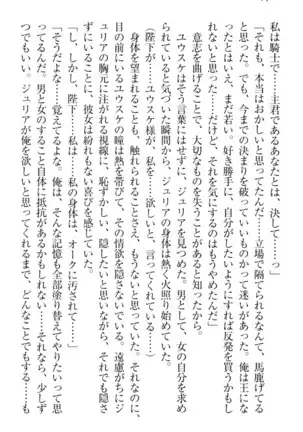 私は騎士で……主君であるあなたとは、決して……っ」
「それも、本当はおかしいと思ってたんだ……立場で隔てられるなんて、馬鹿げてる
と思った。でも、今までの決まりを破っていいものかって迷いがあった。俺は王にな
ったとはいえ、まだ若い。好き勝手に、自分がしたいようにすれば反発を買うかもし
れないと思った……だけど、それを気にするのはもうやめたんだ」
意志を曲げることで、大切なものを失うことがあると知ったから。
ユウスケはそう言葉にはせずに、ジュリアを見つめた。男として、女の自分を求め
られていると気づいた瞬間から、ジュリアの身体は熱く火照り始めていた。
（陛下が……ユウスケ様が、私を……欲しいと……言ってくれている……）
身体を望まれることも、触れられることさえ、もうないと思っていた。それなのに、
目の前にいるユウスケの瞳は熱を帯びて、その情欲を隠さないでいる。遠慮がちにジ
ュリアの胸元に注がれる視線に、恥ずかしい、隠したいと思いながら、それでも隠さ
ずにいることに、彼女は紛れもない喜びを感じていた。
「し、しかし……陛下……私は……私の身体は、オークに汚されて……」
「そうだよな……覚えてるよな。俺は、そんな記憶も全部塗り替えてやりたいって思
ってるんだ。男と女のすること自体に抵抗があるかもしれない……それなら、少しず
つでもいい。ジュリアが俺を欲しいと言ってくれるまで、どんなことでもする……も